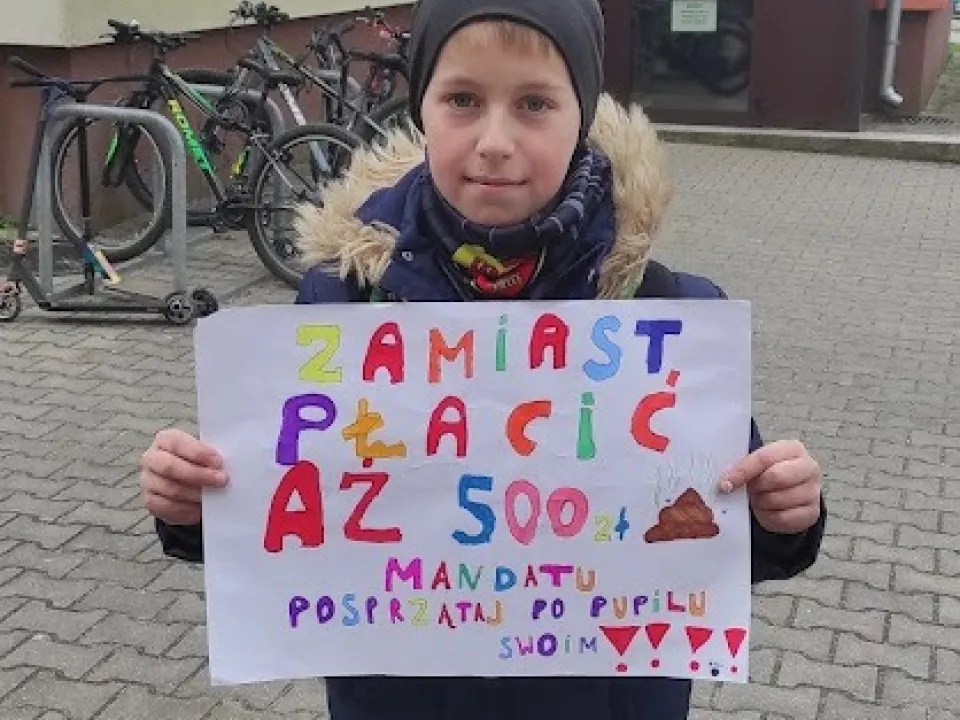 ROMET
ZAMiAST
PŁACiĆ
AŻ 500 zł
MANDATU
POSPRZĄTAJ PO PUPiLU
SWOiM !!!!